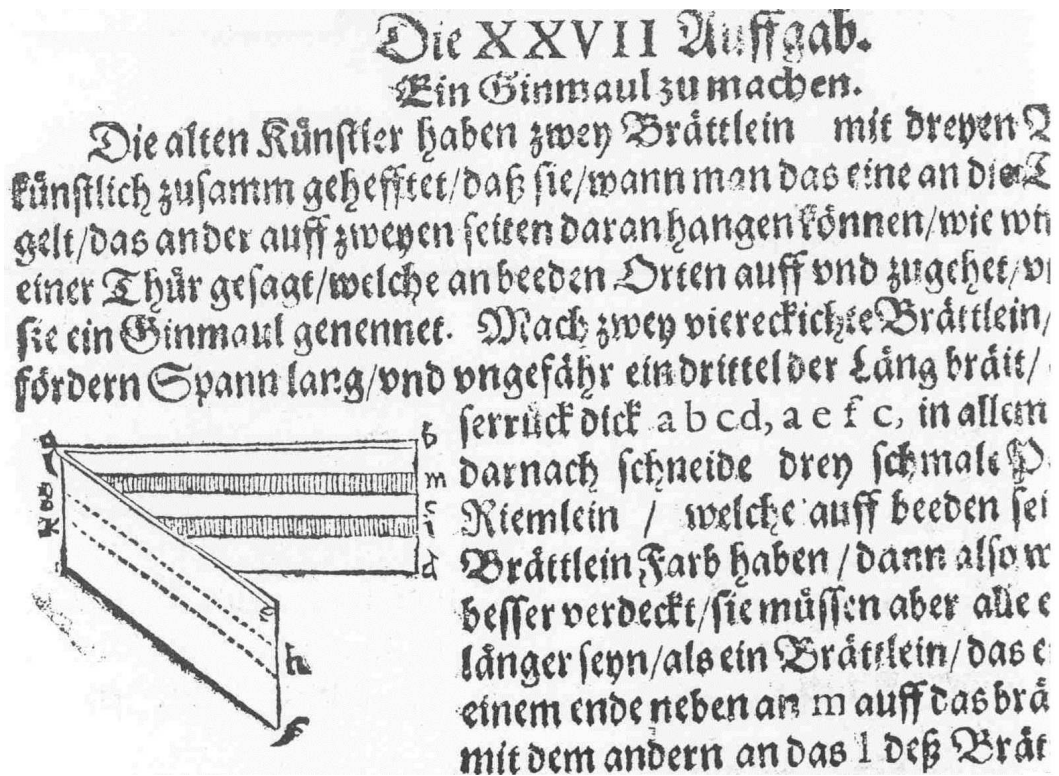 Die XXVII Auffgab.
Ein Ginmaul zu machen.
Die alten Künstler haben zwey Brättlein mit dreyen
künstlich zusamm gehefftet/daß sie/wann man das eine an die
gelt/das ander auff zweyen seiten daran hangen können/wie
einer Thür gesagt/welche an beeden Orten auff vnd zugehet/
sie ein Ginmaul genennet. Mach zwey viereckichte Brättlein/
fördern Spann lang/vnd vngefähr ein drittel der Läng bräit/
serrück dick a b c d, a e f c, in allem
darnach schneide drey schmale
Riemlein / welche auff beeden
Brättlein Farb haben / dann also
besser verdeckt/sie müssen aber alle
länger seyn/als ein Brättlein/das
einem ende neben an m auff das
mit dem andern an das l deß
b
m
c
i
d
g
k
e
h
f